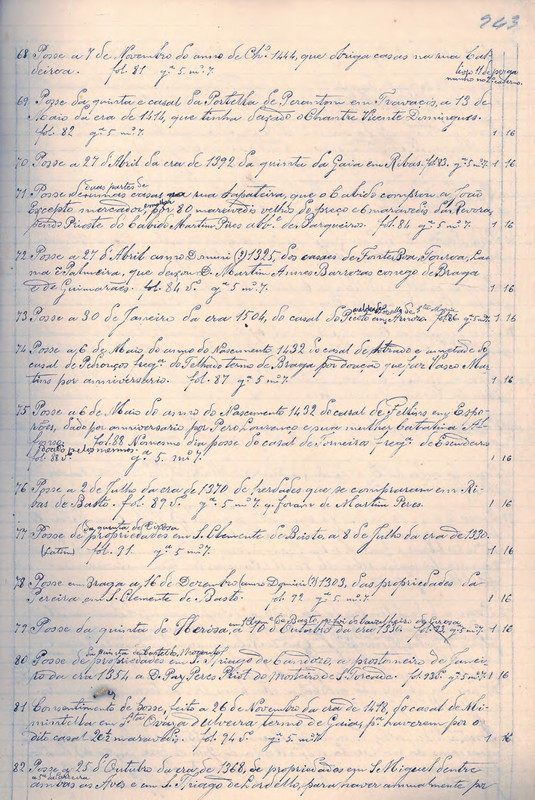 243
68 Posse a 7 de Novembro do anno de Chr.º 1444, que obriga casas na rua Cal-
deiroa. fol. 81 gª 5. mº 7.
69 Posse da quinta e casal da Portella de Perantom em Travaços, a 13 de
Maio da era de 1414, que tinha deixado o Chantre Vicente Domingues.
fol. 82 gª 5. mº 7. 1 16
70 Posse a 27 d'Abril da era de 1392 da quinta da Gaia em Ribas. fol. 83. gª 5. mº 7. 1 16
71 Posse duas partes de casas na rua Sapateira, que o Cabido comprou a João
Excepto mercador, por 80 maravedis velhos de preço e maravedis da Revora,
sendo Prioste do Cabido Martim Pires abb. de Sargueiros. fol. 84 gª 5 mº 7. 1 16
72 Posse a 27 d'Abril anno Domini (?) 1325, dos casaes de Fonte Boa,
e Palmeira, que deixou D. Martim Annes Barrozas conego de Braga
e de Guimarães. fol. 84 vº. gª 5. mº 7. 1 16
73 Posse a 30 de Janeiro da era 1504, do casal do fol. 86. gª 5. mº 7. 1 16
74 Posse a 6 de Maio do anno do Nascimento 1432 do casal de e metade do
casal de Pedronços freg.ª de Telhado termo de Braga por doação que fez Vasco Mar-
tins por anniversario. fol. 87 gª 5 mº 7. 1 16
75 Posse a 6 de Maio do anno do Nascimento 1432 do casal de em Espo-
rões, dado por anniversario por Pero Lourenço e sua mulher Catahina Af-
fonso. fol. 88 No mesmo dia posse do casal de Torneiros freg.ª de Escudeiro
doado pelos mesmos.
fol. 88 vº. gª 5. mº 7. 1 16
76 Posse a 2 de Julho da era de 1370 de herdades que se compraram em Ri-
bas de Basto. fol. 89 vº. gª 5 mº 7. q. foram de Martim Peres. 1 16
77 Posse da quinta de
de propriedades em S. Clemente de Basto, a 8 de Julho da era de 1330.
(Latim) fol. 91. gª 5 mº 7. 1 16
78 Posse em Braga a 16 de Dezembro (anno Domini (?)) 1303, das propriedades da
Pereira em S. Clemente de Basto. fol. 72 gª 5 mº 7. 1 16
79 Posse da quinta de a 10 d'Outubro da era 1336. fol. 93. gª 5 mº 7. 1 16
80 Posse de propriedades em S. Thiago de Candozo, a prostomeiro de Janei-
ro da era 1354 a D. Pay Peres Priol do Mosteiro de S. Torcade. fol. 93 vº. gª 5. mº 7. 1 16
81 Consentimento de posse, feito a 26 de Novembro da era de 1418, do casal de Mi-
mintella em termo de Gaia, pª haverem por o
dito casal 20 maravedis. fol. 94 vº. gª 5. mº 7. 1 16
82 Posse a 25 d'Outubro da era de 1368, de propriedades em S. Miguel dentre
ambas as Aves e em S. Thiago de Lordello, para haver annualmente por